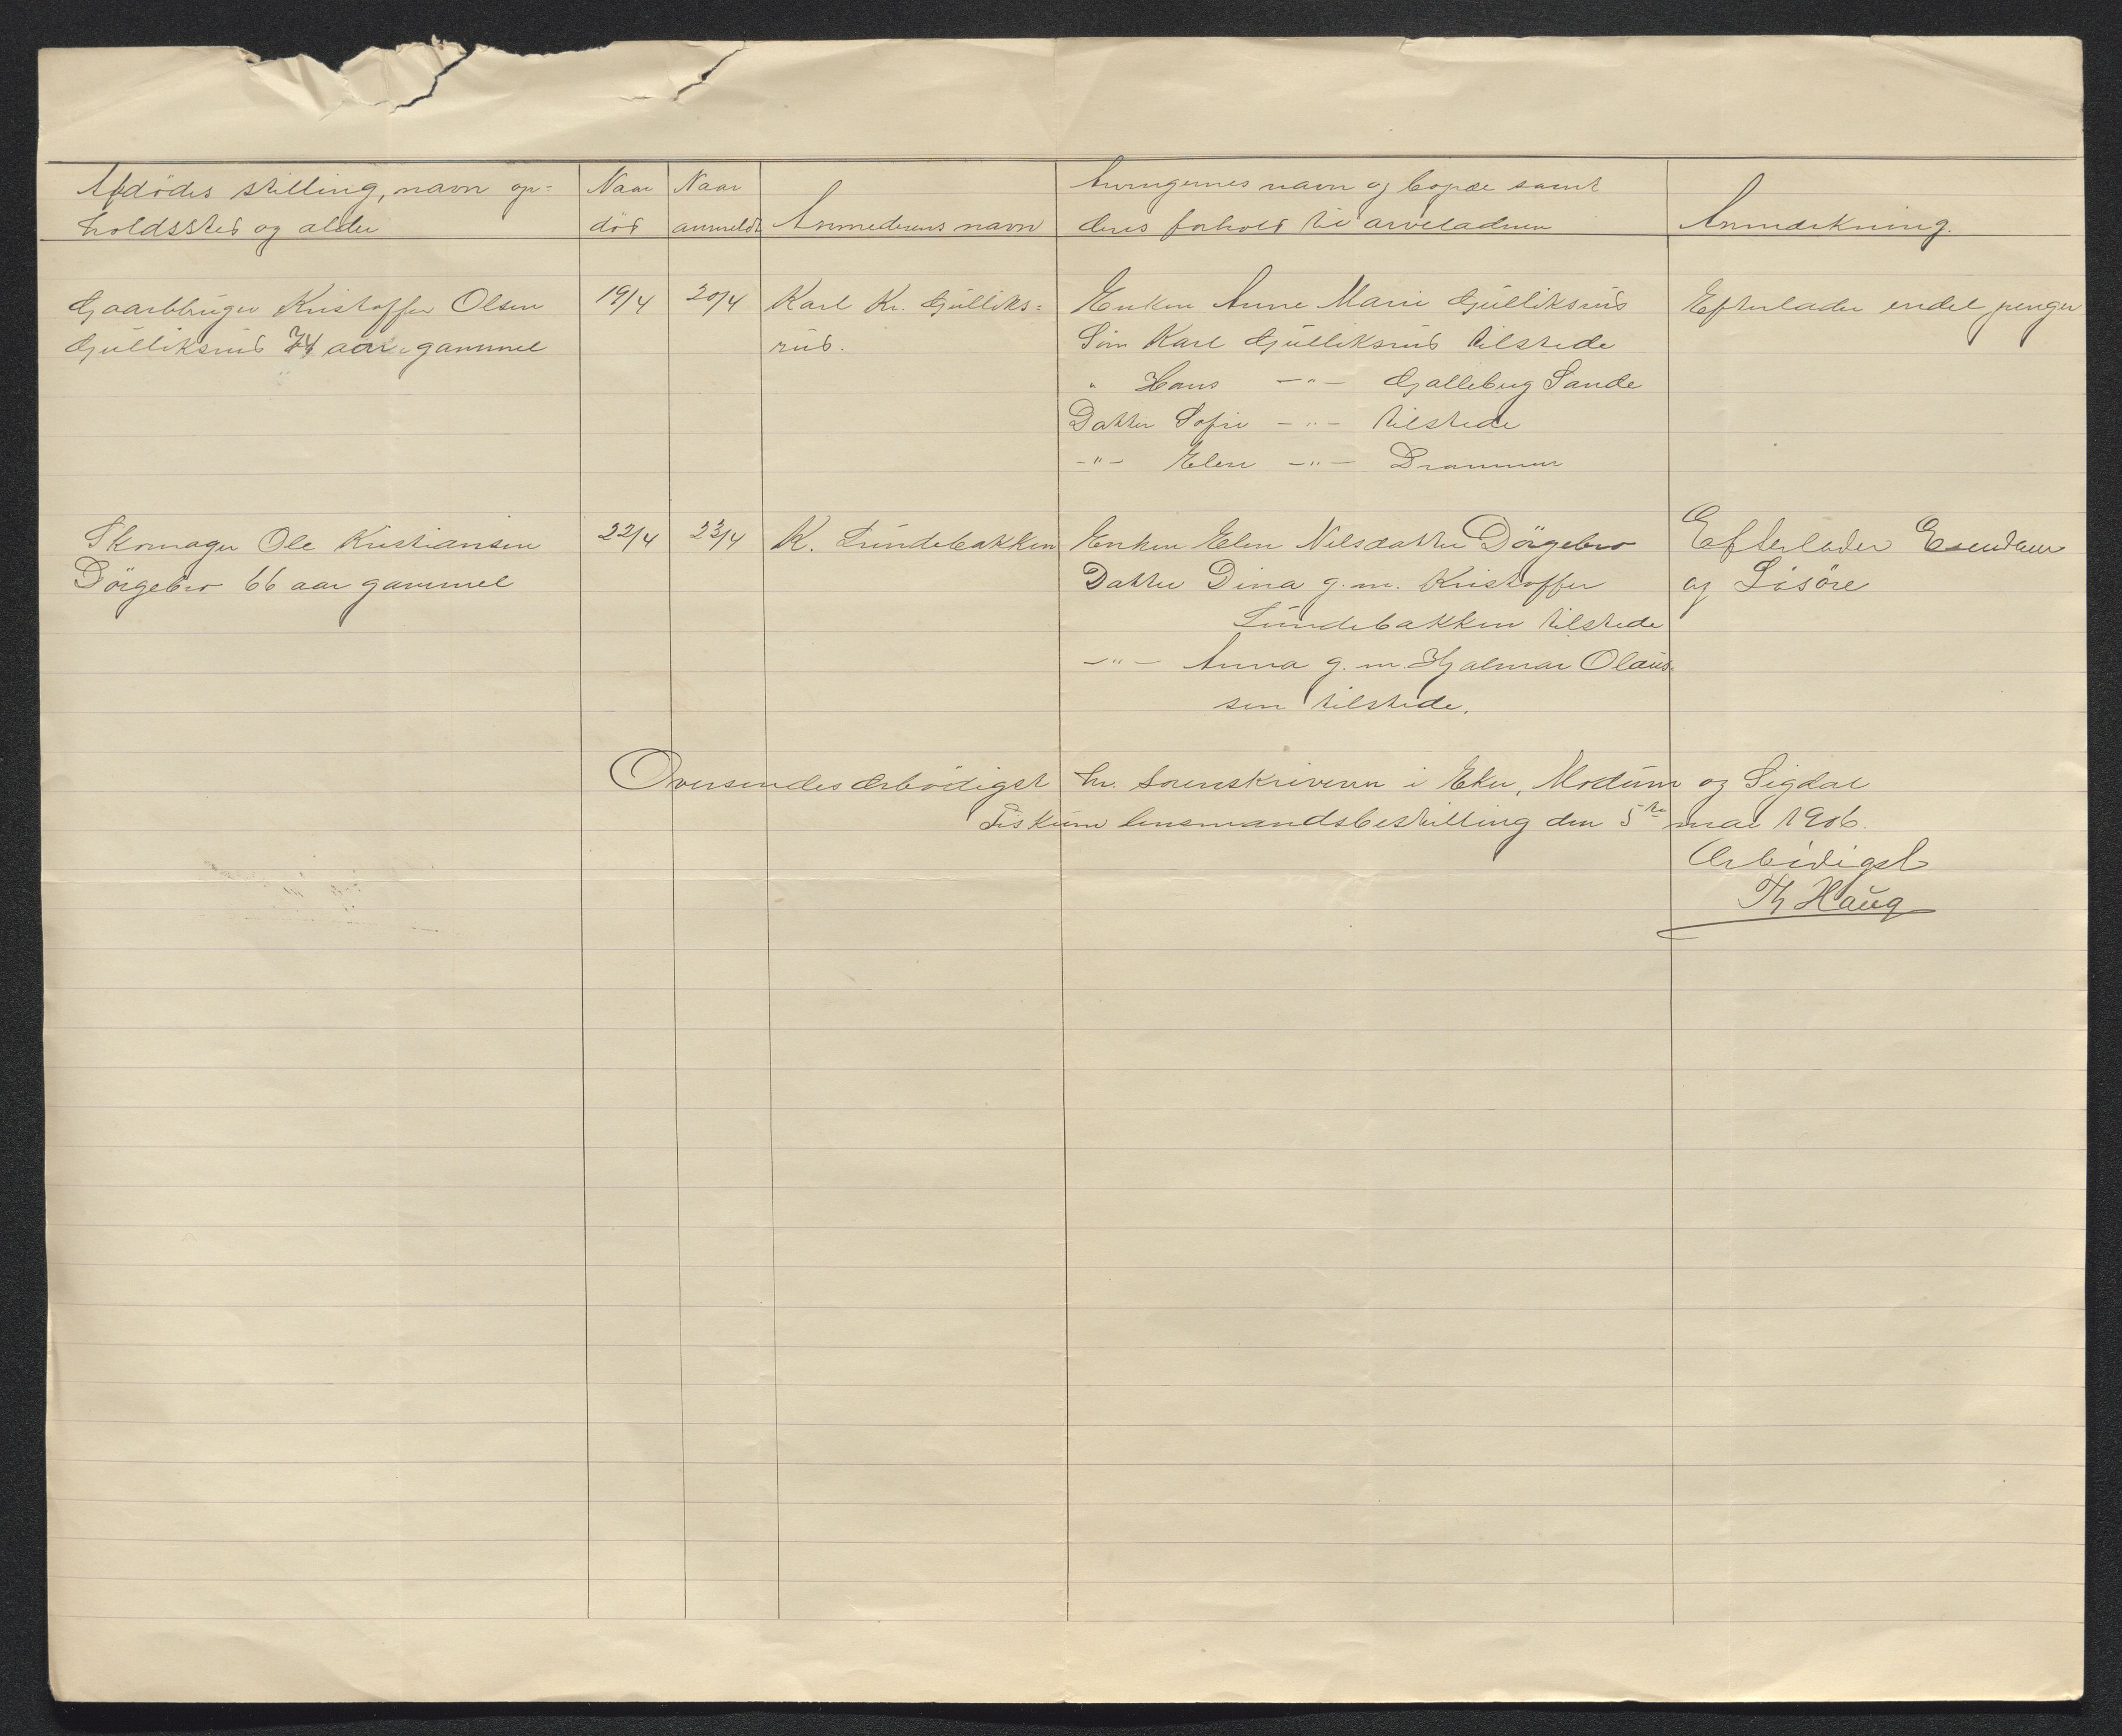 Afdødes stilling, navn op=
holdssted og alder
Naar
død
Naar
anmeldt
Anmelderens navn
Arvingernes navn og bopæl samt
deres forhold til arveladeren
Anmerkning.
Gaardbruger Kristoffer Olsen
Gulliksrud 74 aar gammel
19/4
20/4
Karl Kr. Gulliks=
rud.
Enken Anne Marie Gulliksrud
Søn Karl Gulliksrud tilstede
" Hans —"— Gallebug Sande
Datter Sofie —"— tilstede
—"— Elen —"— Drammen
Efterlader endel penger
Skomager Ole Kristiansen
Dørgebro 66 aar gammel
22/4
23/4
K. Lundebakken
Enken Elen Nilsdatter Dørgebro
Datter Dina g. m. Kristoffer
Lundebakken tilstede
—"— Anna g. m. Hjalmar Olaus-
sen tilstede.
Efterlader Eiendom
og Løsøre
Oversendes ærbødigst hr. sorenskriveren i Eker, Modum og Sigdal
Fiskum lensmandsbestilling den 5te mai 1906.
Ærbødigst
Th Haug